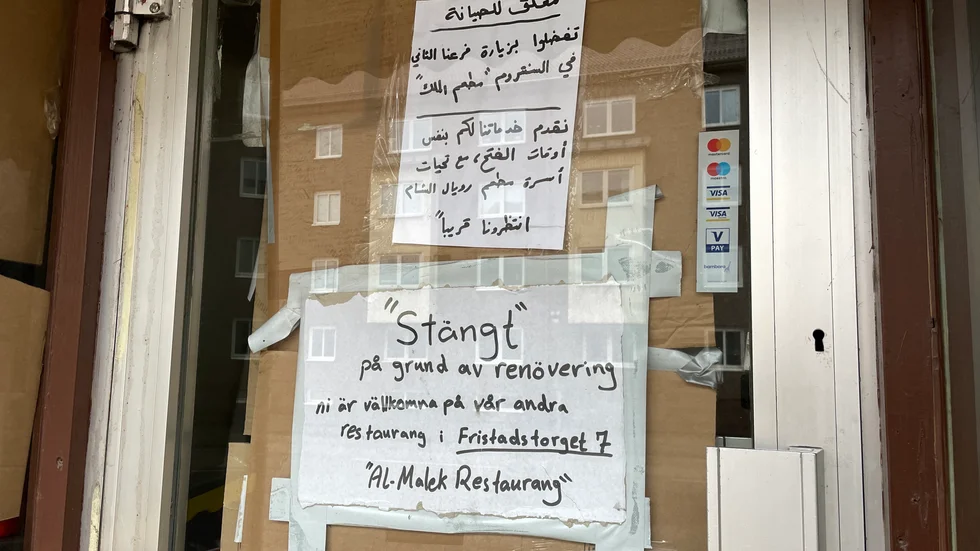 مغلق للصيانة
تفضلوا بزيارة فرعنا الثاني
في السنتروم "مطعم الملك"
نقدم خدماتنا لكم بنفس
أوقات الفتح، مع تحيات
أسرة مطعم رويال الشام
انتظرونا قريباً
mastercard
maestro
VISA
VISA
V
PAY
bambora
"Stängt"
på grund av renövering
ni är välkomna på vår andra
restaurang i Fristadstorget 7
"AL-Malek Restaurang"